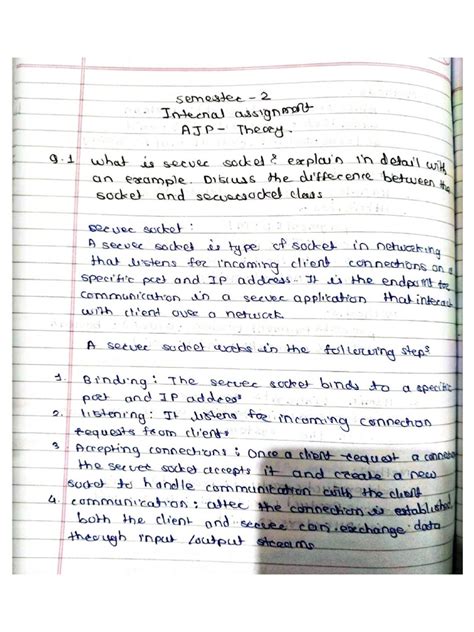 Semester - 2
Internal assignment
AJP - Theory.
Q.1 What is server socket? explain in detail with
an example. Discuss the difference between the
socket and serversocket class.
server socket :
A server socket is type of socket in networking
that listens for incoming client connections on a
specific port and IP address. It is the endpoint for
communication in a server application that interact
with client over a network.
A server socket works in the following steps
1. Binding : The server socket binds to a specific
port and IP address
2. listening : It listens for incoming connection
requests from clients
3. Accepting connections : Once a client request a connection
the server socket accepts it and create a new
socket to handle communication with the client
4. communication : after the connection is established,
both the client and server can exchange data
through input / output streams